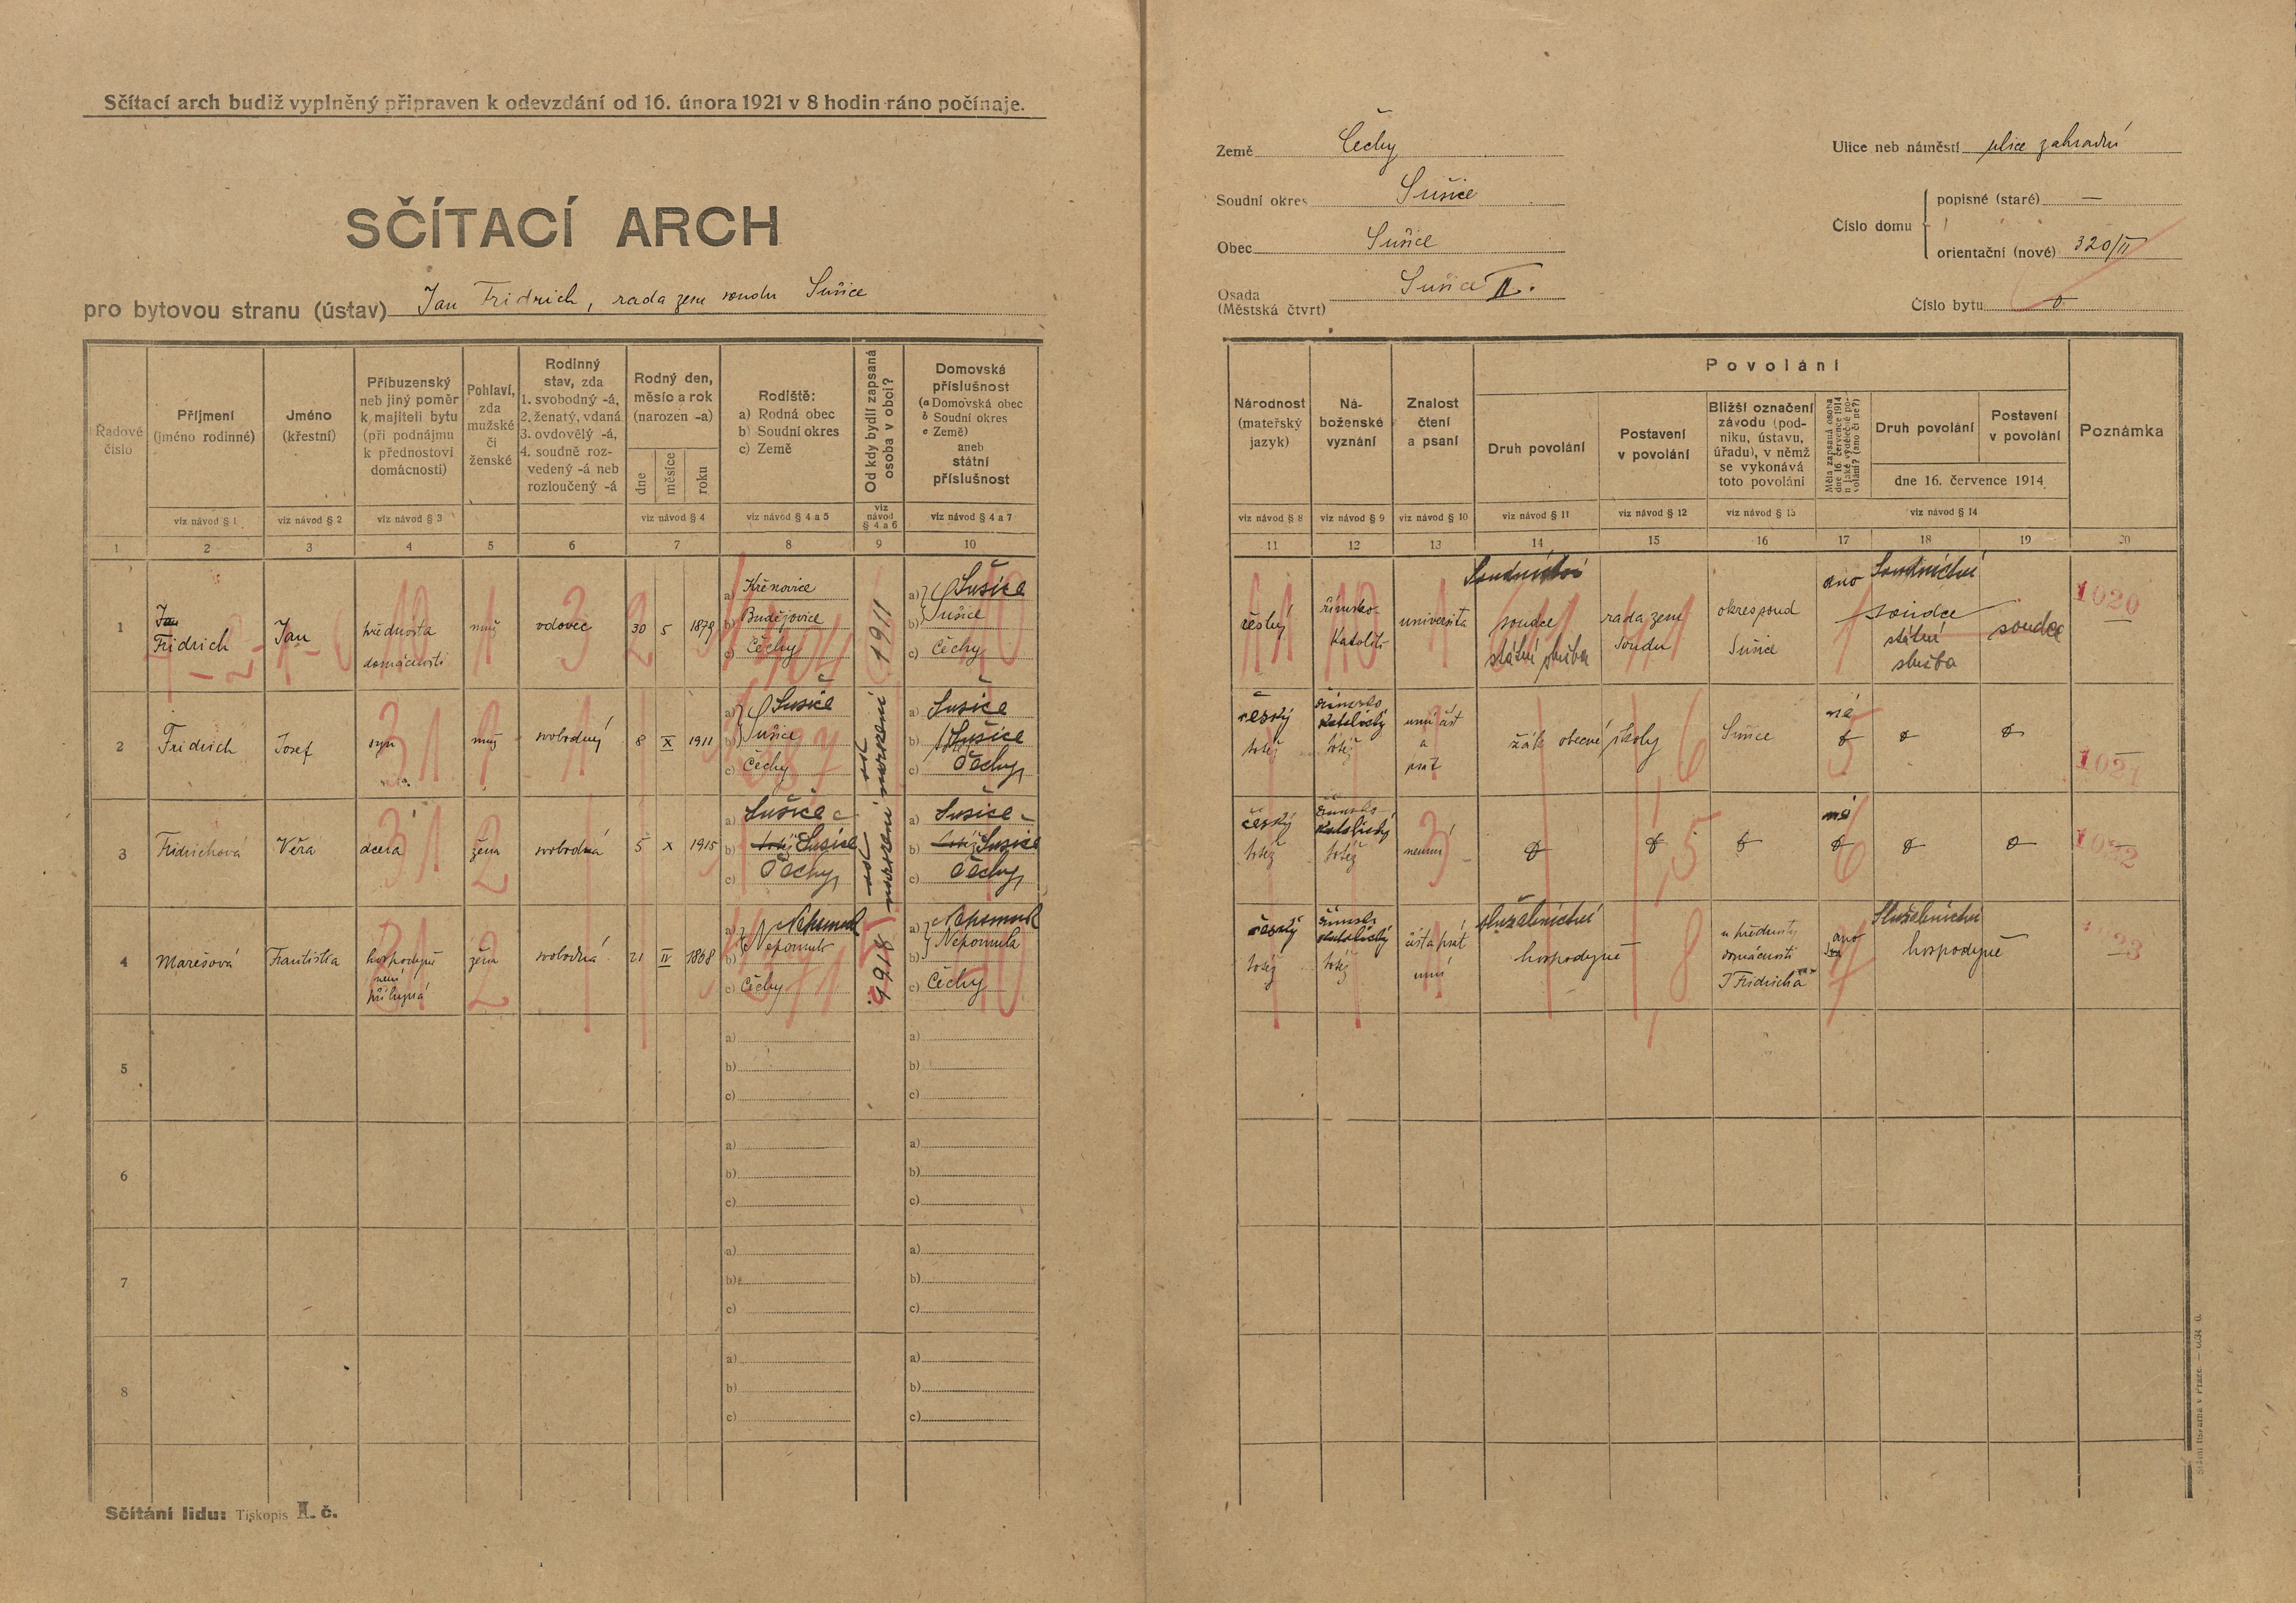 Sčítací arch budiž vyplněný připraven k odevzdání od 16. února 1921 v 8 hodin ráno počínaje.
SČÍTACÍ ARCH
pro bytovou stranu (ústav) Jan Fridrich, rada zem soudu Sušice
Země Čechy
Soudní okres Sušice
Obec Sušice
Osada (Městská čtvrt) Sušice II.
Ulice neb náměstí ulice zahradní
Číslo domu
popisné (staré) —
orientační (nové) 320/II
Číslo bytu 0
Řadové číslo
Příjmení (jméno rodinné)
Jméno (křestní)
Příbuzenský neb jiný poměr k majiteli bytu (při podnájmu k přednostovi domácnosti)
Pohlaví, zda mužské či ženské
Rodinný stav, zda 1. svobodný -á, 2. ženatý, vdaná 3. ovdovělý -á, 4. soudně rozvedený -á neb rozloučený -á
Rodný den, měsíc a rok (narozen -a)
dne
měsíce
roku
Rodiště:
a) Rodná obec
b) Soudní okres
c) Země
Od kdy bydlí zapsaná osoba v obci?
Domovská příslušnost
(a Domovská obec
b Soudní okres
c Země)
aneb státní příslušnost
viz návod § 1
viz návod § 2
viz návod § 3
viz návod § 4
viz návod § 4 a 5
viz návod § 4 a 6
viz návod § 4 a 7
1 2 3 4 5 6 7 8 9 10
Národnost (mateřský jazyk)
Náboženské vyznání
Znalost čtení a psaní
Povolání
Druh povolání
Postavení v povolání
Bližší označení závodu (podniku, ústavu, úřadu), v němž se vykonává toto povolání
Měla zapsaná osoba dne 16. července 1914 nějaké výdělečné povolání? (ano či ne?)
Druh povolání
Postavení v povolání
dne 16. července 1914
Poznámka
viz návod § 8
viz návod § 9
viz návod § 10
viz návod § 11
viz návod § 12
viz návod § 13
viz návod § 14
11 12 13 14 15 16 17 18 19 20
1
Jan
Fridrich
Jan
přednosta
domácnosti
muž
vdovec
30 5 1879
a) Křenovice
b) Budějovice
c) Čechy
1911
a) Sušice
b) Sušice
c) Čechy
český
římsko-
katolík
universita
Soudnictví
soudce
státní služba
rada zem
soudu
okres soud
Sušice
ano
Soudnictví
soudce
státní
služba
soudce
1020
2
Fridrich
Josef
syn
muž
svobodný
8 X 1911
a) Sušice
b) Sušice
c) Čechy
od narození
a) Sušice
b) Sušice
c) Čechy
český
totéž
římsko
katolický
totéž
umí číst
a
psát
žák obecné školy
Sušice
ne
1021
3
Fridrichová
Věra
dcera
žena
svobodná
5 X 1915
a) Sušice
b) totéž Sušice
c) Čechy
od narození
a) Sušice
b) totéž Sušice
c) Čechy
český
totéž
římsko
katolický
totéž
neumí
ne
1022
4
Marešová
Františka
hospodyně
není
příbuzná
žena
svobodná
21 IV 1868
a) Nepomuk
b) Nepomuk
c) Čechy
1918
a) Nepomuk
b) Nepomuk
c) Čechy
český
totéž
římsko
katolický
totéž
číst a psát
umí
služebnictví
hospodyně
u přednosty
domácnosti
J Fridricha
ano
Služebnictví
hospodyně
1023
5
a)
b)
c)
a)
b)
c)
6
a)
b)
c)
a)
b)
c)
7
a)
b)
c)
a)
b)
c)
8
a)
b)
c)
a)
b)
c)
Sčítání lidu: Tiskopis II. č.